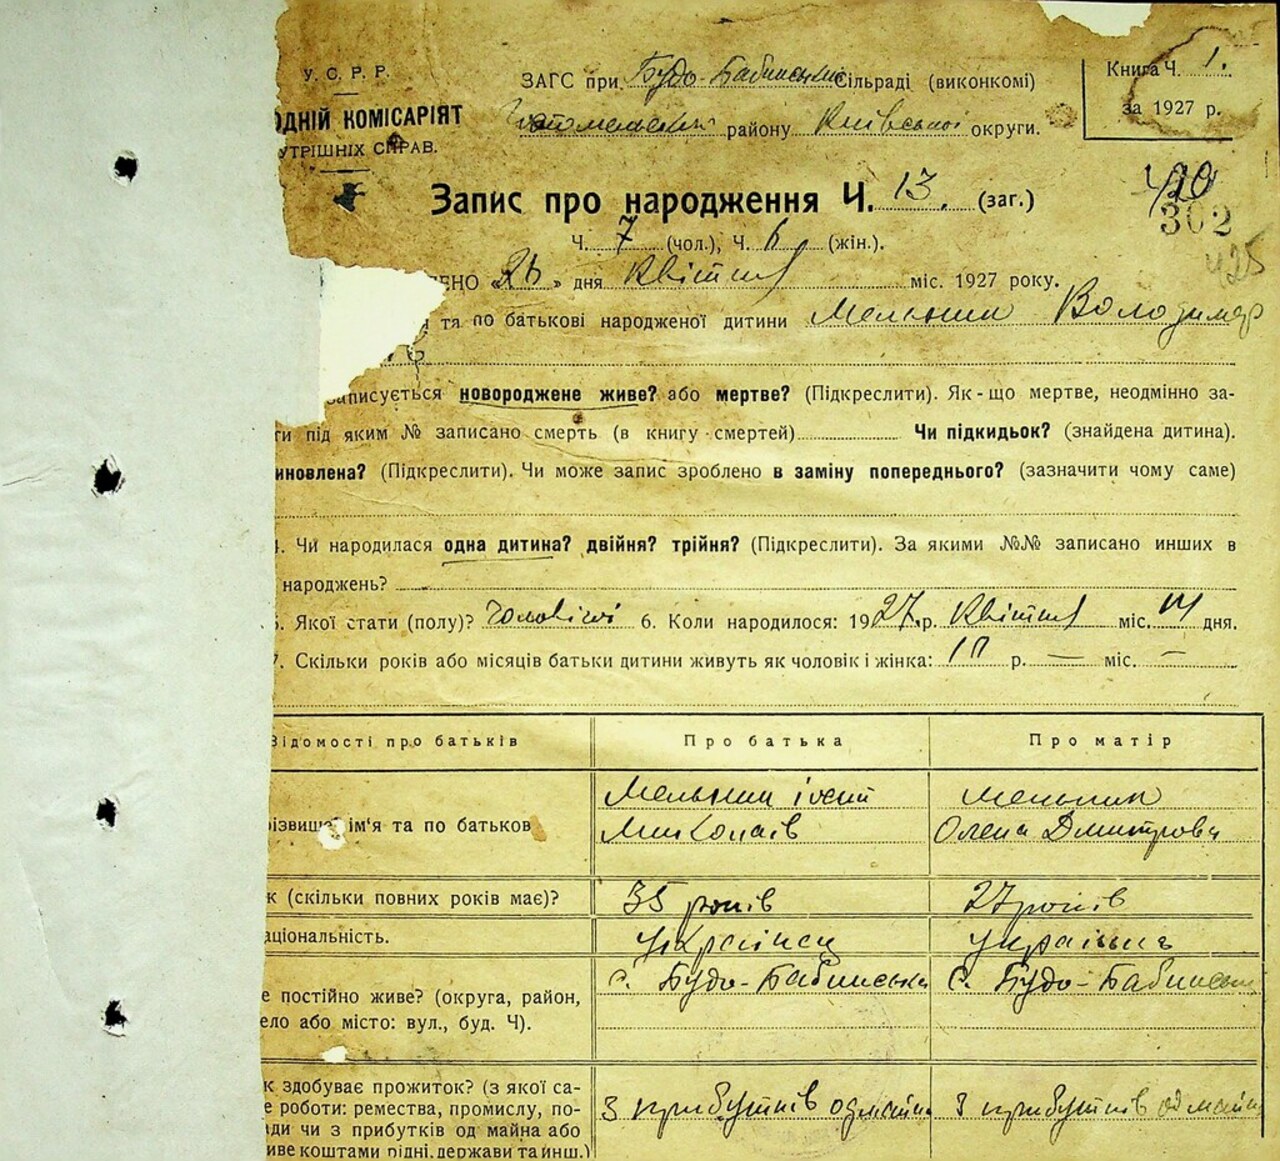 У. С. Р. Р.
ОДНІЙ КОМІСАРІЯТ
УТРІШНІХ СПРАВ.
ЗАГС при Будо-Бабинській Сільраді (виконкомі)
району Київської округи.
Книга Ч. 1.
за 1927 р.
Запис про народження Ч. 13. (заг.)
302
425
Ч. 7 (чол.), Ч. 6 (жін.).
ЕНО « » дня Квітня міс. 1927 року.
та по батькові народженої дитини Мельник Володимер
записується новороджене живе? або мертве? (Підкреслити). Як-що мертве, неодмінно за-
ти під яким № записано смерть (в книгу смертей) Чи підкидьок? (знайдена дитина).
иновлена? (Підкреслити). Чи може запис зроблено в заміну попереднього? (зазначити чому саме)
4. Чи народилася одна дитина? двійня? трійня? (Підкреслити). За якими №№ записано инших в
народжень?
5. Якої стати (полу)? Чоловічої 6. Коли народилося: 1927 р. Квітня міс. 14 дня.
7. Скільки років або місяців батьки дитини живуть як чоловік і жінка: р. — міс. —
Відомості про батьків Про батька Про матір
Мельник Мельник
різвище ім'я та по батьков Миколаїв Олена Дмитровн
к (скільки повних років має)? 35 років 27 років
аціональність. Українец Українка
с. Будо-Бабинська с. Будо-Бабинська
е постійно живе? (округа, район,
ело або місто: вул., буд. Ч).
к здобуває прожиток? (з якої са- З прибутків од майна З прибутків од майна
е роботи: ремества, промислу, по-
ади чи з прибутків од майна або
иве коштами рідні, держави та инш.)